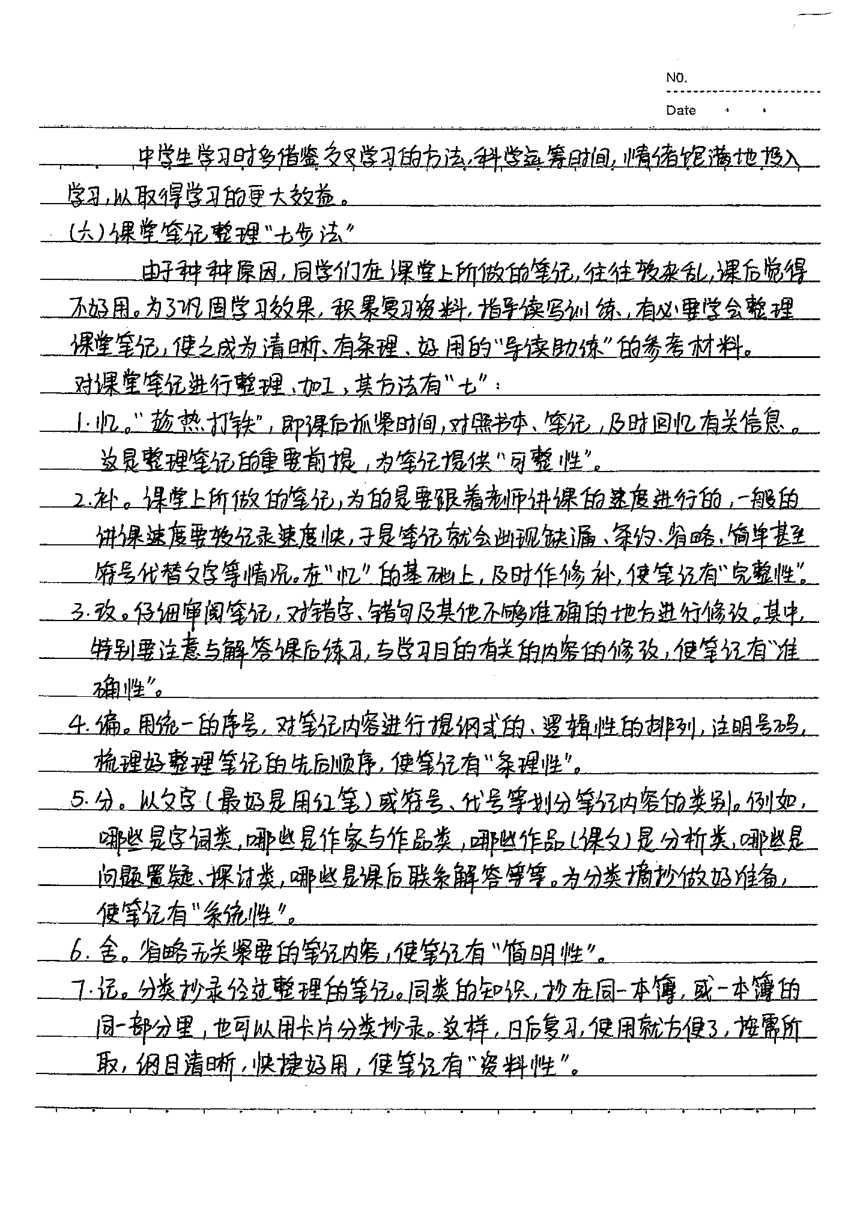 NO.
Date
中学生学习时多借鉴多又学习的方法,科学运筹时间,情绪饱满地投入
学习,以取得学习的更大效益。
(六)课堂笔记整理“七步法”
由于种种原因,同学们在课堂上所做的笔记,往往较杂乱,课后觉得
不好用。为了巩固学习效果,积累复习资料,指导读写训练,有必要学会整理
课堂笔记,使之成为清晰、有条理、好用的“导读助练”的参考材料。
对课堂笔记进行整理、加工,其方法有“七”:
1.忆。“趁热打铁”,即课后抓紧时间,对照书本、笔记,及时回忆有关信息。
这是整理笔记的重要前提,为笔记提供“可整性”。
2.补。课堂上所做的笔记,为的是要跟着老师讲课的速度进行的,一般的
讲课速度要较记录速度快,于是笔记就会出现缺漏、条约、省略、简单甚至
符号代替文字等情况。在“忆”的基础上,及时作修补,使笔记有“完整性”。
3.改。仔细审阅笔记,对错字、错句及其他不够准确的地方进行修改。其中,
特别要注意与解答课后练习,与学习目的有关的内容的修改,使笔记有“准
确性”。
4.编。用统一的序号,对笔记内容进行提纲式的、逻辑性的排列,注明号码,
梳理好整理笔记的先后顺序,使笔记有“条理性”。
5.分。以文字(最好是用红笔)或符号、代号等划分笔记内容的类别。例如,
哪些是字词类,哪些是作家与作品类,哪些作品(课文)是分析类,哪些是
问题置疑、探讨类,哪些是课后联系解答等等。为分类摘抄做好准备,
使笔记有“系统性”。
6.舍。省略无关紧要的笔记内容,使笔记有“简明性”。
7.记。分类抄录经过整理的笔记。同类的知识,抄在同一本簿,或一本簿的
同一部分里,也可以用卡片分类抄录。这样,日后复习,使用就方便了,按需所
取,纲目清晰,快捷好用,使笔记有“资料性”。